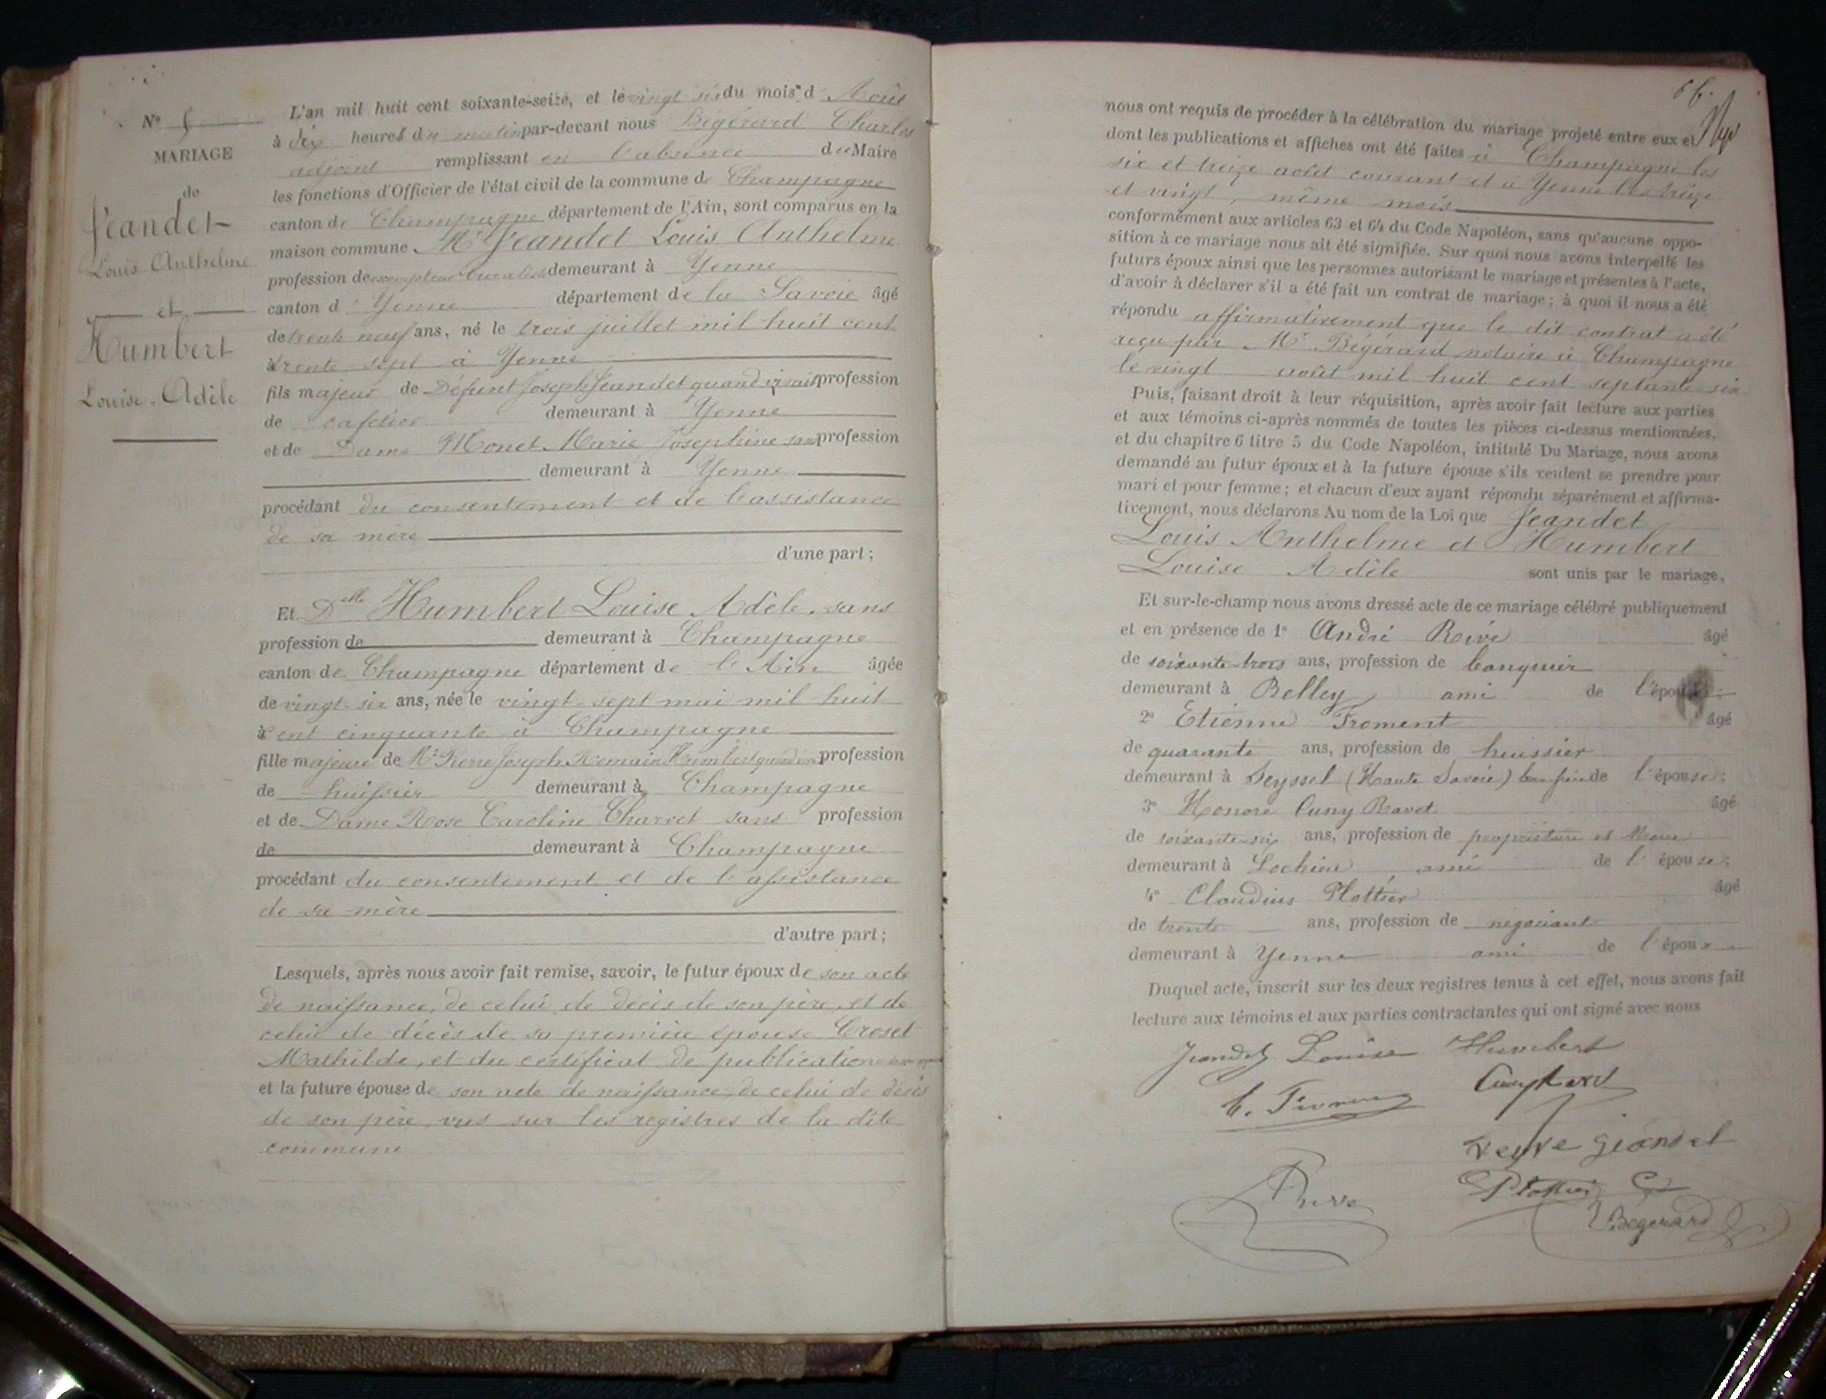 N° 5
MARIAGE
de
Jeandet
Louis Anthelme
et
Humbert
Louise Adèle
L'an mil huit cent soixante-seize, et le vingt six du mois d'Août
à dix heures du matin par-devant nous Bégérard Charles
adjoint remplissant en l'absence du Maire
les fonctions d'Officier de l'état civil de la commune de Champagne
canton de Champagne département de l'Ain, sont comparus en la
maison commune Mr Jeandet Louis Anthelme
profession de demeurant à Yenne
canton d'Yenne département de la Savoie âgé
de trente neuf ans, né le trois juillet mil huit cent
trente sept à Yenne
fils majeur de Défunt Joseph Jeandet quand vivait profession
de cafetier demeurant à Yenne
et de Dame Monet Marie Josephine sans profession
demeurant à Yenne
procédant du consentement et de l'assistance
de sa mère
d'une part;
Et Dlle Humbert Louise Adèle, sans
profession de demeurant à Champagne
canton de Champagne département de l'Ain âgée
de vingt-six ans, née le vingt-sept mai mil huit
cent cinquante à Champagne
fille majeure de Mr Pierre Joseph Romain Humbert quand vivait profession
de huissier demeurant à Champagne
et de Dame Rose Caroline Charvet sans profession
de demeurant à Champagne
procédant du consentement et de l'assistance
de sa mère
d'autre part;
Lesquels, après nous avoir fait remise, savoir, le futur époux de son acte
de naissance, de celui de décès de son père, et de
celui de décès de sa première épouse Croset
Mathilde, et du certificat de publication
et la future épouse de son acte de naissance, de celui de décès
de son père, vus sur les registres de la dite
commune
66.
nous ont requis de procéder à la célébration du mariage projeté entre eux et
dont les publications et affiches ont été faites à Champagne les
six et treize août courant et à Yenne les treize
et vingt, même mois
conformément aux articles 63 et 64 du Code Napoléon, sans qu'aucune oppo-
sition à ce mariage nous ait été signifiée. Sur quoi nous avons interpellé les
futurs époux ainsi que les personnes autorisant le mariage et présentes à l'acte,
d'avoir à déclarer s'il a été fait un contrat de mariage; à quoi il nous a été
répondu affirmativement que le dit contrat a été
reçu par Me Bégérard notaire à Champagne
le vingt août mil huit cent septante six
Puis, faisant droit à leur réquisition, après avoir fait lecture aux parties
et aux témoins ci-après nommés de toutes les pièces ci-dessus mentionnées,
et du chapitre 6 titre 5 du Code Napoléon, intitulé Du Mariage, nous avons
demandé au futur époux et à la future épouse s'ils veulent se prendre pour
mari et pour femme; et chacun d'eux ayant répondu séparément et affirma-
tivement, nous déclarons Au nom de la Loi que Jeandet
Louis Anthelme et Humbert
Louise Adèle sont unis par le mariage,
Et sur-le-champ nous avons dressé acte de ce mariage célébré publiquement
et en présence de 1° André Rive âgé
de soixante-trois ans, profession de banquier
demeurant à Belley, ami de l'épouse;
2° Etienne Froment âgé
de quarante ans, profession de huissier
demeurant à Seyssel (Haute Savoie) beau frère de l'épouse;
3° Honoré Cuny Ravet âgé
de soixante-six ans, profession de propriétaire et Maire
demeurant à Lochieu ami de l'épouse;
4° Claudius Plottier âgé
de trente ans, profession de négociant
demeurant à Yenne ami de l'époux
Duquel acte, inscrit sur les deux registres tenus à cet effet, nous avons fait
lecture aux témoins et aux parties contractantes qui ont signé avec nous
Jeandet Louise Humbert
E. Froment Cuny Ravet
veuve géandet
Rive Plottier
Bégérard